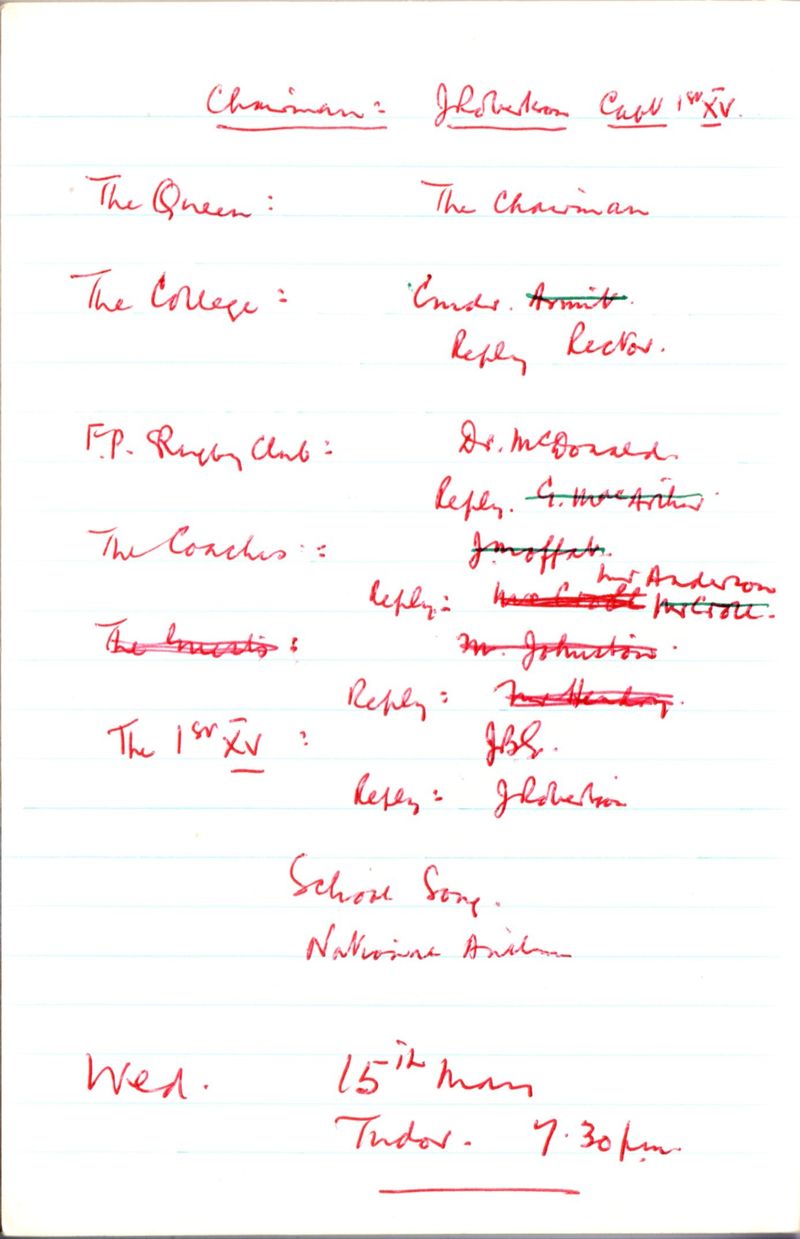 Chairman: J Robertson Capt 1st XV.
The Queen: The Chairman
The College: Cmdr. Armit.
Reply Rector.
F.P. Rugby Club: Dr. McDonald.
Reply. G. MacArthur
The Coaches: J Moffat.
Mr Anderson
Reply: Mr Croll.
The Guests: M. Johnston.
Reply: Mr Hendry.
The 1st XV: JBG.
Reply: J Robertson
School Song.
National Anthem
Wed. 15th May
Tudor. 7.30 pm.